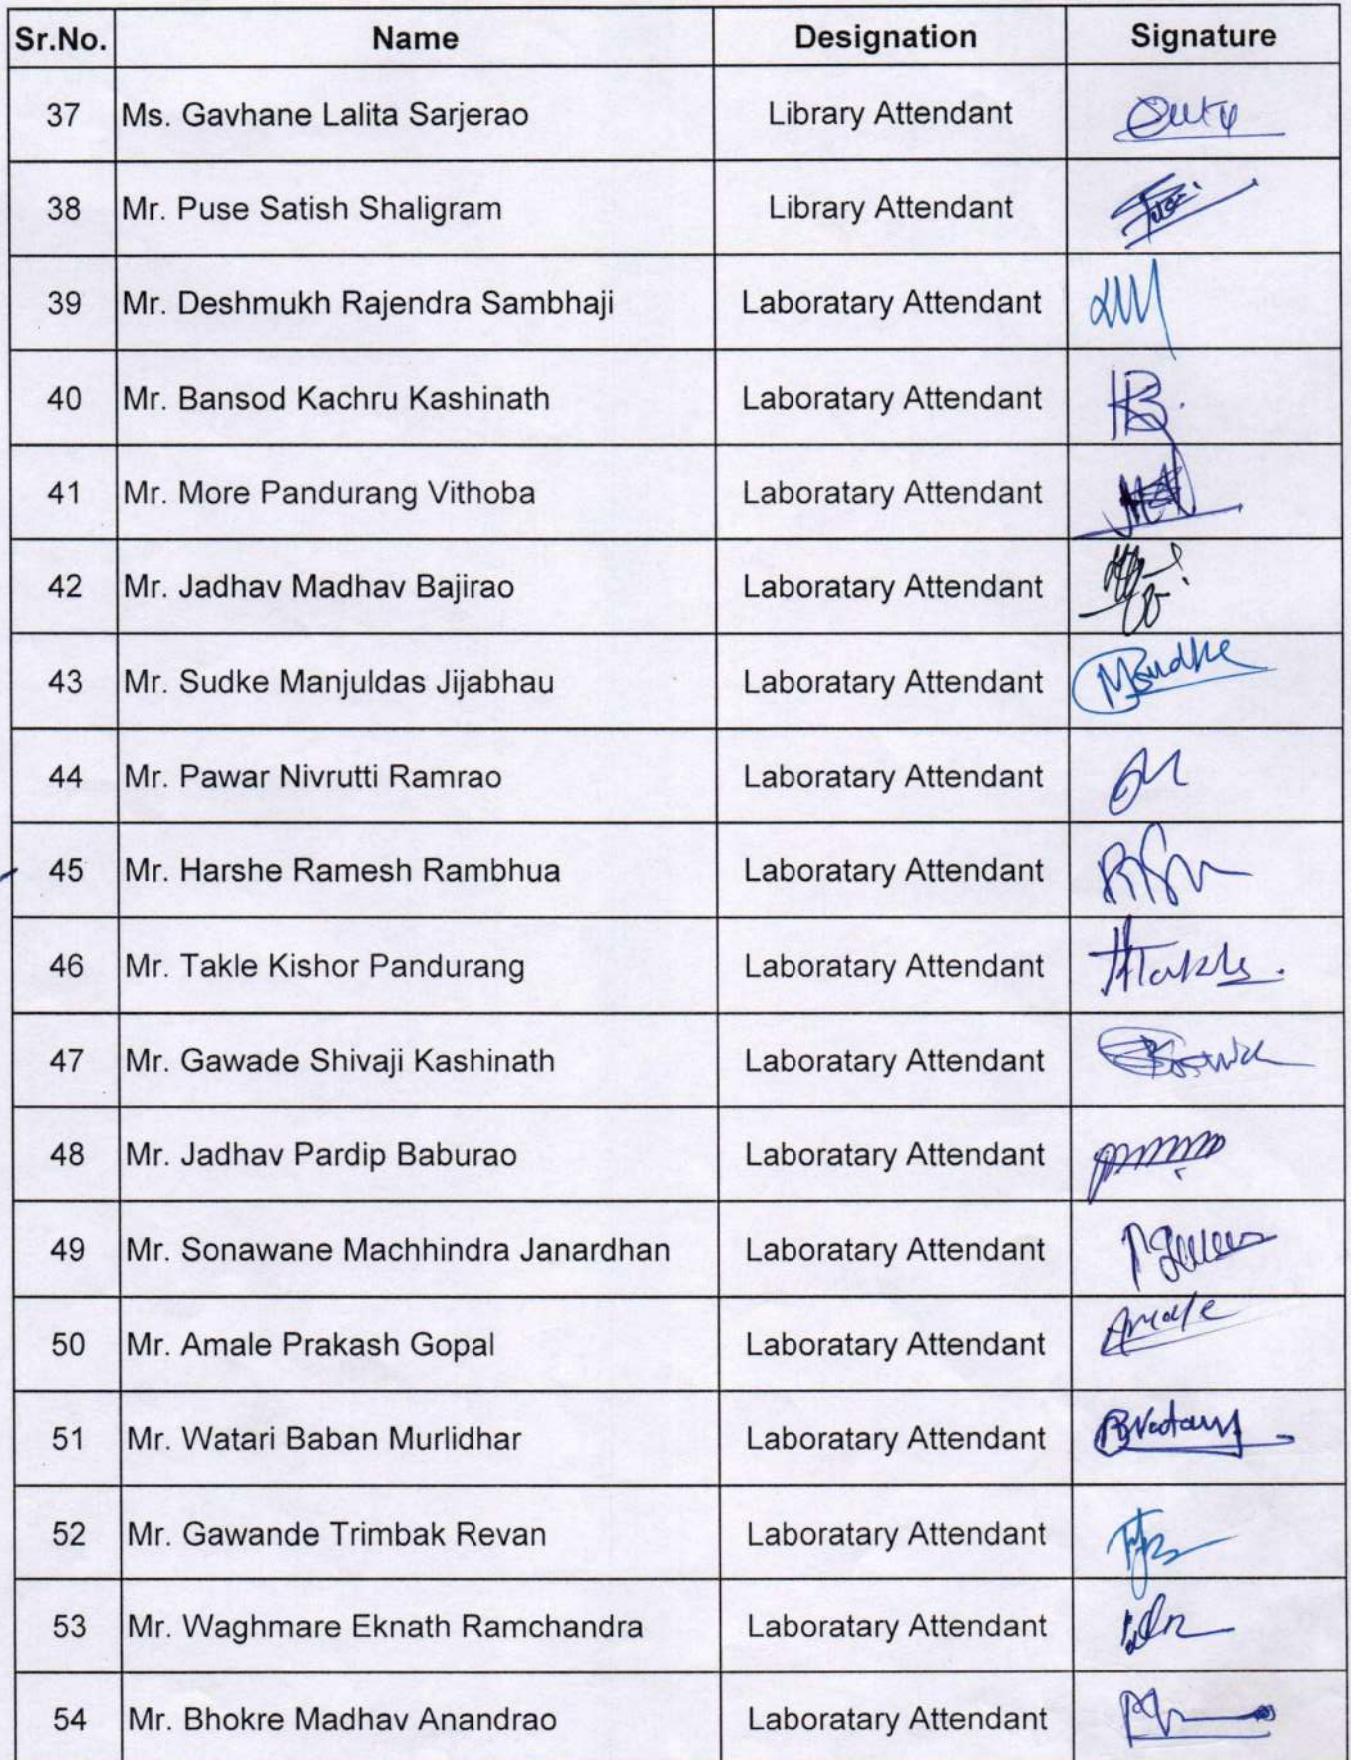 Sr.No. Name Designation Signature
37 Ms. Gavhane Lalita Sarjerao Library Attendant
38 Mr. Puse Satish Shaligram Library Attendant
39 Mr. Deshmukh Rajendra Sambhaji Laboratary Attendant
40 Mr. Bansod Kachru Kashinath Laboratary Attendant
41 Mr. More Pandurang Vithoba Laboratary Attendant
42 Mr. Jadhav Madhav Bajirao Laboratary Attendant
43 Mr. Sudke Manjuldas Jijabhau Laboratary Attendant MSudke
44 Mr. Pawar Nivrutti Ramrao Laboratary Attendant
45 Mr. Harshe Ramesh Rambhua Laboratary Attendant
46 Mr. Takle Kishor Pandurang Laboratary Attendant
47 Mr. Gawade Shivaji Kashinath Laboratary Attendant
48 Mr. Jadhav Pardip Baburao Laboratary Attendant
49 Mr. Sonawane Machhindra Janardhan Laboratary Attendant
50 Mr. Amale Prakash Gopal Laboratary Attendant Amale
51 Mr. Watari Baban Murlidhar Laboratary Attendant
52 Mr. Gawande Trimbak Revan Laboratary Attendant
53 Mr. Waghmare Eknath Ramchandra Laboratary Attendant
54 Mr. Bhokre Madhav Anandrao Laboratary Attendant